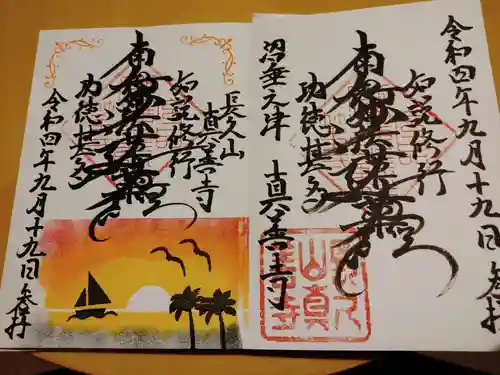 令和四年九月十九日 参拝
如説修行
南無妙法蓮華経
功徳甚多
沼垂
真善寺
長久
山真
善寺
長久山
真善寺
如説修行
南無妙法蓮華経
功徳甚多
令和四年九月十九日 参拝